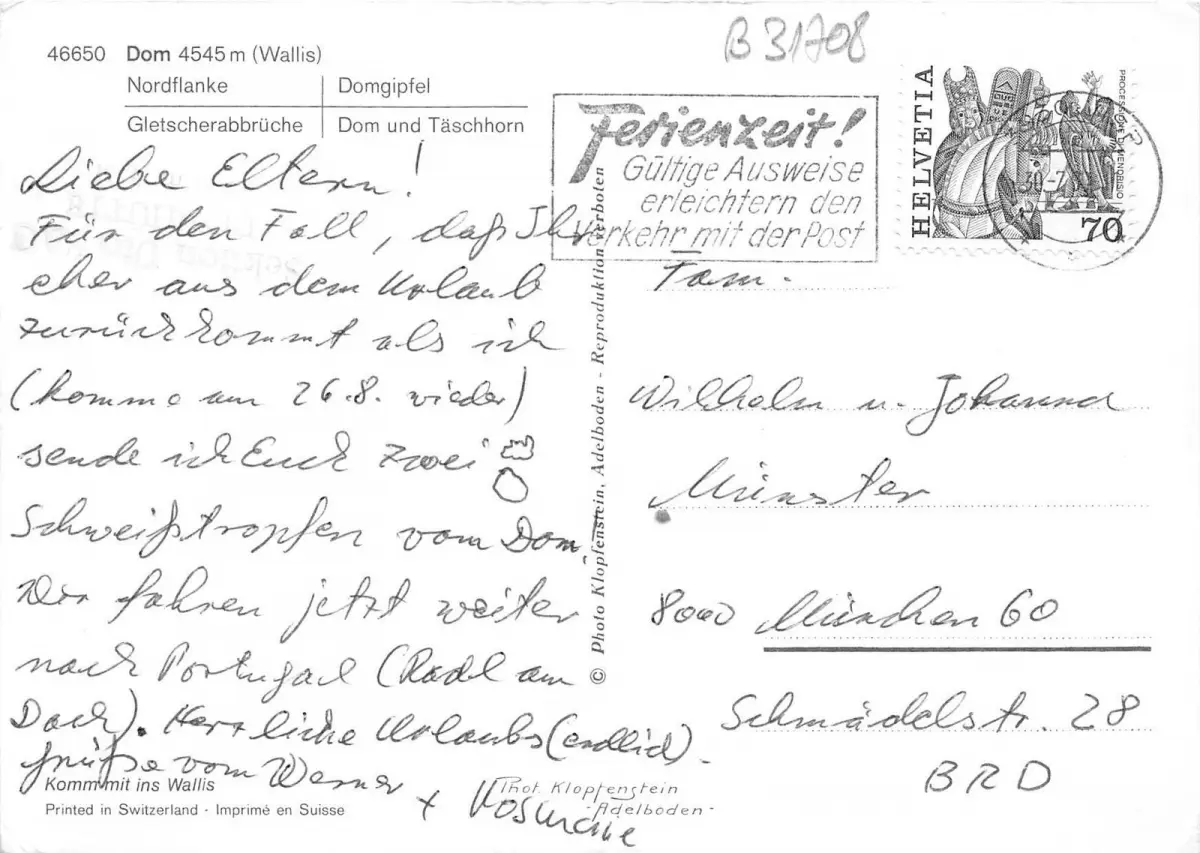 B 31708
46650 Dom 4545 m (Wallis)
Nordflanke | Domgipfel
Gletscherabbrüche | Dom und Täschhorn
Liebe Eltern!
Für den Fall, daß Ihr
eher aus dem Urlaub
zurückkommt als ich
(komme am 26.8. wieder)
sende ich Euch zwei
Schweißtropfen vom Dom.
Wir fahren jetzt weiter
nach Portugal (Radl am
Dach). Herrliche Urlaubs(endlich)-
grüße vom Werner
+
Komm mit ins Wallis
Printed in Switzerland · Imprimé en Suisse
© Photo Klopfenstein, Adelboden - Reproduktion verboten
Phot. Klopfenstein
- Adelboden -
Ferienzeit!
Gültige Ausweise
erleichtern den
Verkehr mit der Post
HELVETIA
70
30.-7
Fam.
Wilhelm u. Johanna
Münster
8000 München 60
Schmädelstr. 28
BRD